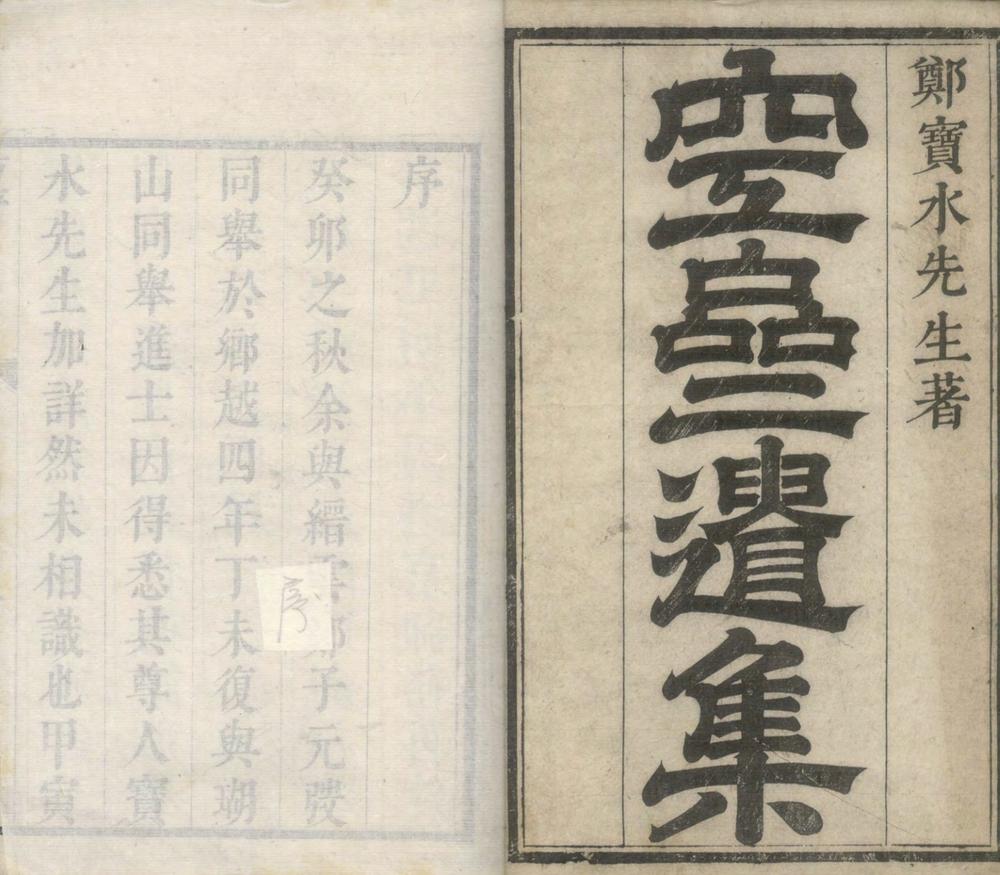 鄭寶水先生著
空遺集
序
癸卯之秋余與縉雲鄭子元
同舉於鄉越四年丁未復與瑚
山同舉進士因得悉其尊人寶
水先生加詳然未相識也甲寅
序